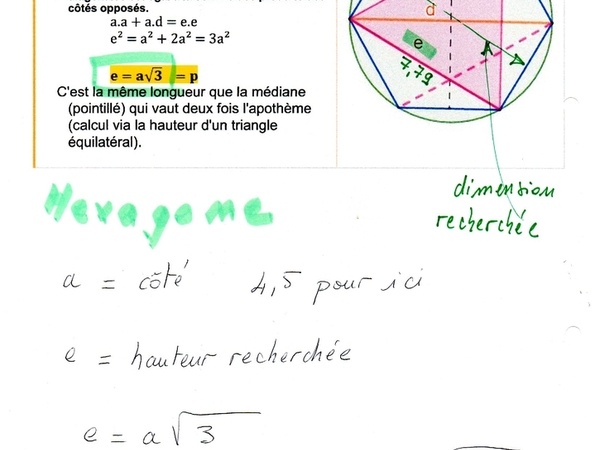 côtés opposés.
a.a + a.d = e.e
e² = a² + 2a² = 3a²
e = a√3 = p
C'est la même longueur que la médiane
(pointillé) qui vaut deux fois l'apothème
(calcul via la hauteur d'un triangle
équilatéral).
d
e
7,79
dimension
recherchée
Hexagone
a = côté 4,5 pour ici
e = hauteur recherchée
e = a√3